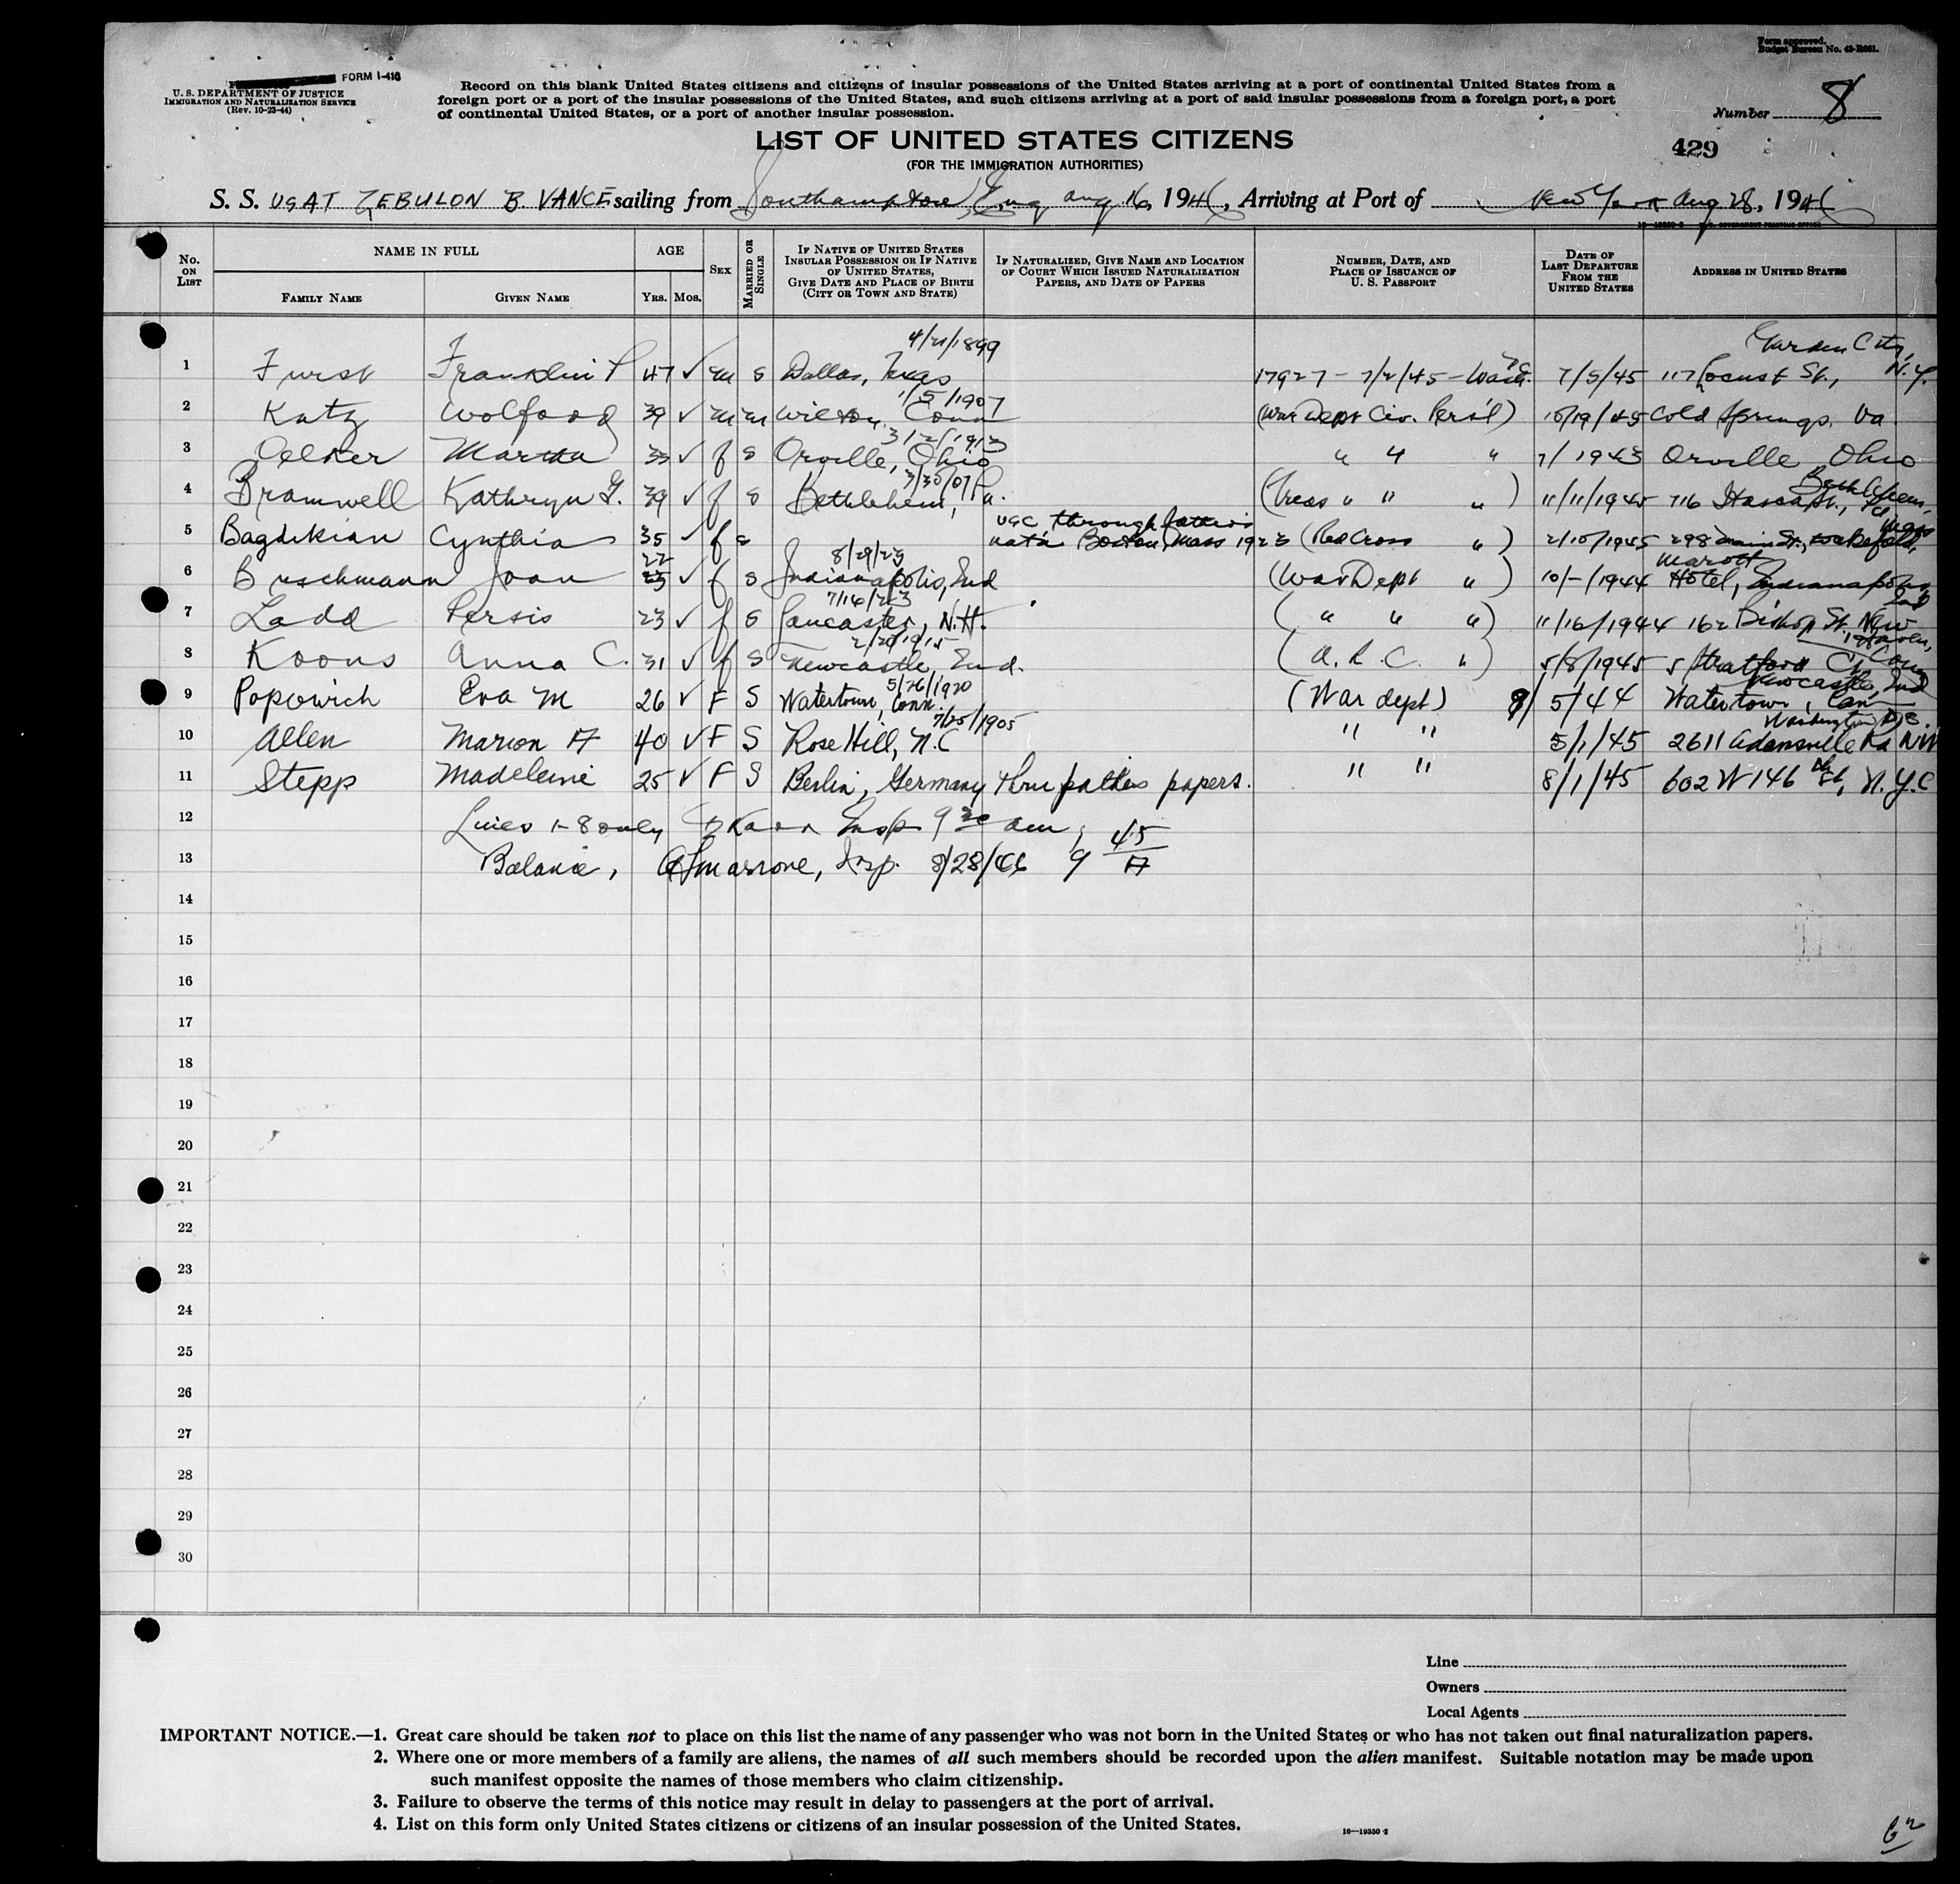 Form approved.
Budget Bureau No. 43-R061.
FORM I-416
U. S. DEPARTMENT OF JUSTICE
IMMIGRATION AND NATURALIZATION SERVICE
(Rev. 10-23-44)
Record on this blank United States citizens and citizens of insular possessions of the United States arriving at a port of continental United States from a
foreign port or a port of the insular possessions of the United States, and such citizens arriving at a port of said insular possessions from a foreign port, a port
of continental United States, or a port of another insular possession.
Number 8
LIST OF UNITED STATES CITIZENS
(FOR THE IMMIGRATION AUTHORITIES)
429
S. S. USAT ZEBULON B. VANCE sailing from Southampton, Eng Aug 16, 1946, Arriving at Port of New York Aug 28, 1946
No. ON LIST
NAME IN FULL
FAMILY NAME
GIVEN NAME
AGE
YRS. MOS.
SEX
MARRIED OR SINGLE
IF NATIVE OF UNITED STATES INSULAR POSSESSION OR IF NATIVE OF UNITED STATES, GIVE DATE AND PLACE OF BIRTH (CITY OR TOWN AND STATE)
IF NATURALIZED, GIVE NAME AND LOCATION OF COURT WHICH ISSUED NATURALIZATION PAPERS, AND DATE OF PAPERS
NUMBER, DATE, AND PLACE OF ISSUANCE OF U. S. PASSPORT
DATE OF LAST DEPARTURE FROM THE UNITED STATES
ADDRESS IN UNITED STATES
1 Furst Franklin P 47 ✓ m s Dallas, Texas 17927 - 7/2/45 - Wash. 7/5/45 117 Locust St., Garden City, N.Y.
2 Katz Wolfood 39 ✓ m m Wilton Conn 1/5/1907 (War Dept Civ. Pers'l) 10/19/45 Cold Springs, Va.
3 Oelker Martha 33 ✓ f s Orville, Ohio 3/2/1913 " " " 7/1943 Orville Ohio
4 Bramwell Kathryn G. 39 ✓ f s Bethlehem, Pa. 7/30/07 (Treas " " ") 11/11/1945 716 St., Bethlehem, Pa
5 Bagdikian Cynthia 35 ✓ f s USC through father's nat'n Boston, Mass 1923 (Red Cross ") 2/10/1945 298 Main St., Wakefield, Mass
6 Buschmann Joan 22 ✓ f s Indianapolis, Ind 8/29/23 (War Dept ") 10/-/1944 Marott Hotel, Indianapolis, Ind
7 Ladd Persis 23 ✓ f s Lancaster, N.H. 7/16/23 (" " ") 11/16/1944 162 Bishop St. New Haven, Conn
8 Koons Anna C. 31 ✓ f s Newcastle, Ind. 2/20/1915 (A. R. C. ") 5/8/1945 Stratford Newcastle, Ind
9 Popowich Eva M 26 ✓ F S Watertown, Conn. 5/26/1920 (War dept) 9/5/44 Watertown, Conn
10 Allen Marion A 40 ✓ F S Rose Hill, N.C 7/25/1905 " " 5/1/45 2611 Adamsville Rd NW Washington D.C.
11 Stepp Madeleine 25 ✓ F S Berlin, Germany thru fathers papers. " " 8/1/45 602 W 146th St, N.Y.C
12 Lines 1-8 only Insp 9 30 am;
13 Balance, Insp. 8/28/46 9 45 A
14
15
16
17
18
19
20
21
22
23
24
25
26
27
28
29
30
Line
Owners
Local Agents
IMPORTANT NOTICE.—1. Great care should be taken not to place on this list the name of any passenger who was not born in the United States or who has not taken out final naturalization papers.
2. Where one or more members of a family are aliens, the names of all such members should be recorded upon the alien manifest. Suitable notation may be made upon
such manifest opposite the names of those members who claim citizenship.
3. Failure to observe the terms of this notice may result in delay to passengers at the port of arrival.
4. List on this form only United States citizens or citizens of an insular possession of the United States.
16—19350-2